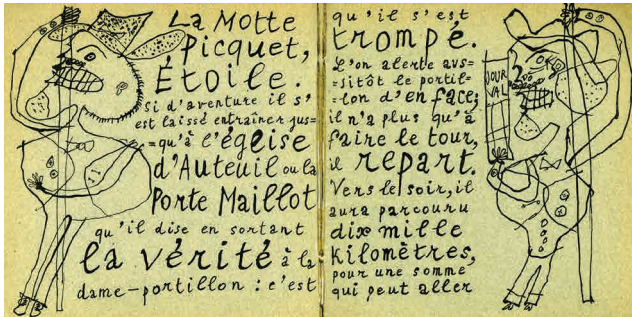 La Motte
Picquet,
Étoile.
Si d'aventure il s'
est laissé entraîner jus=
=qu'à l'église
d'Auteuil ou la
Porte Maillot
qu'il dise en sortant
la vérité à la
dame-portillon : c'est
qu'il s'est
trompé.
L'on alerte aus=
=sitôt le portil=
=lon d'en face;
il n'a plus qu'à
faire le tour,
il repart.
Vers le soir, il
aura parcouru
dix mille
kilomètres,
pour une somme
qui peut aller
JOUR
VAL